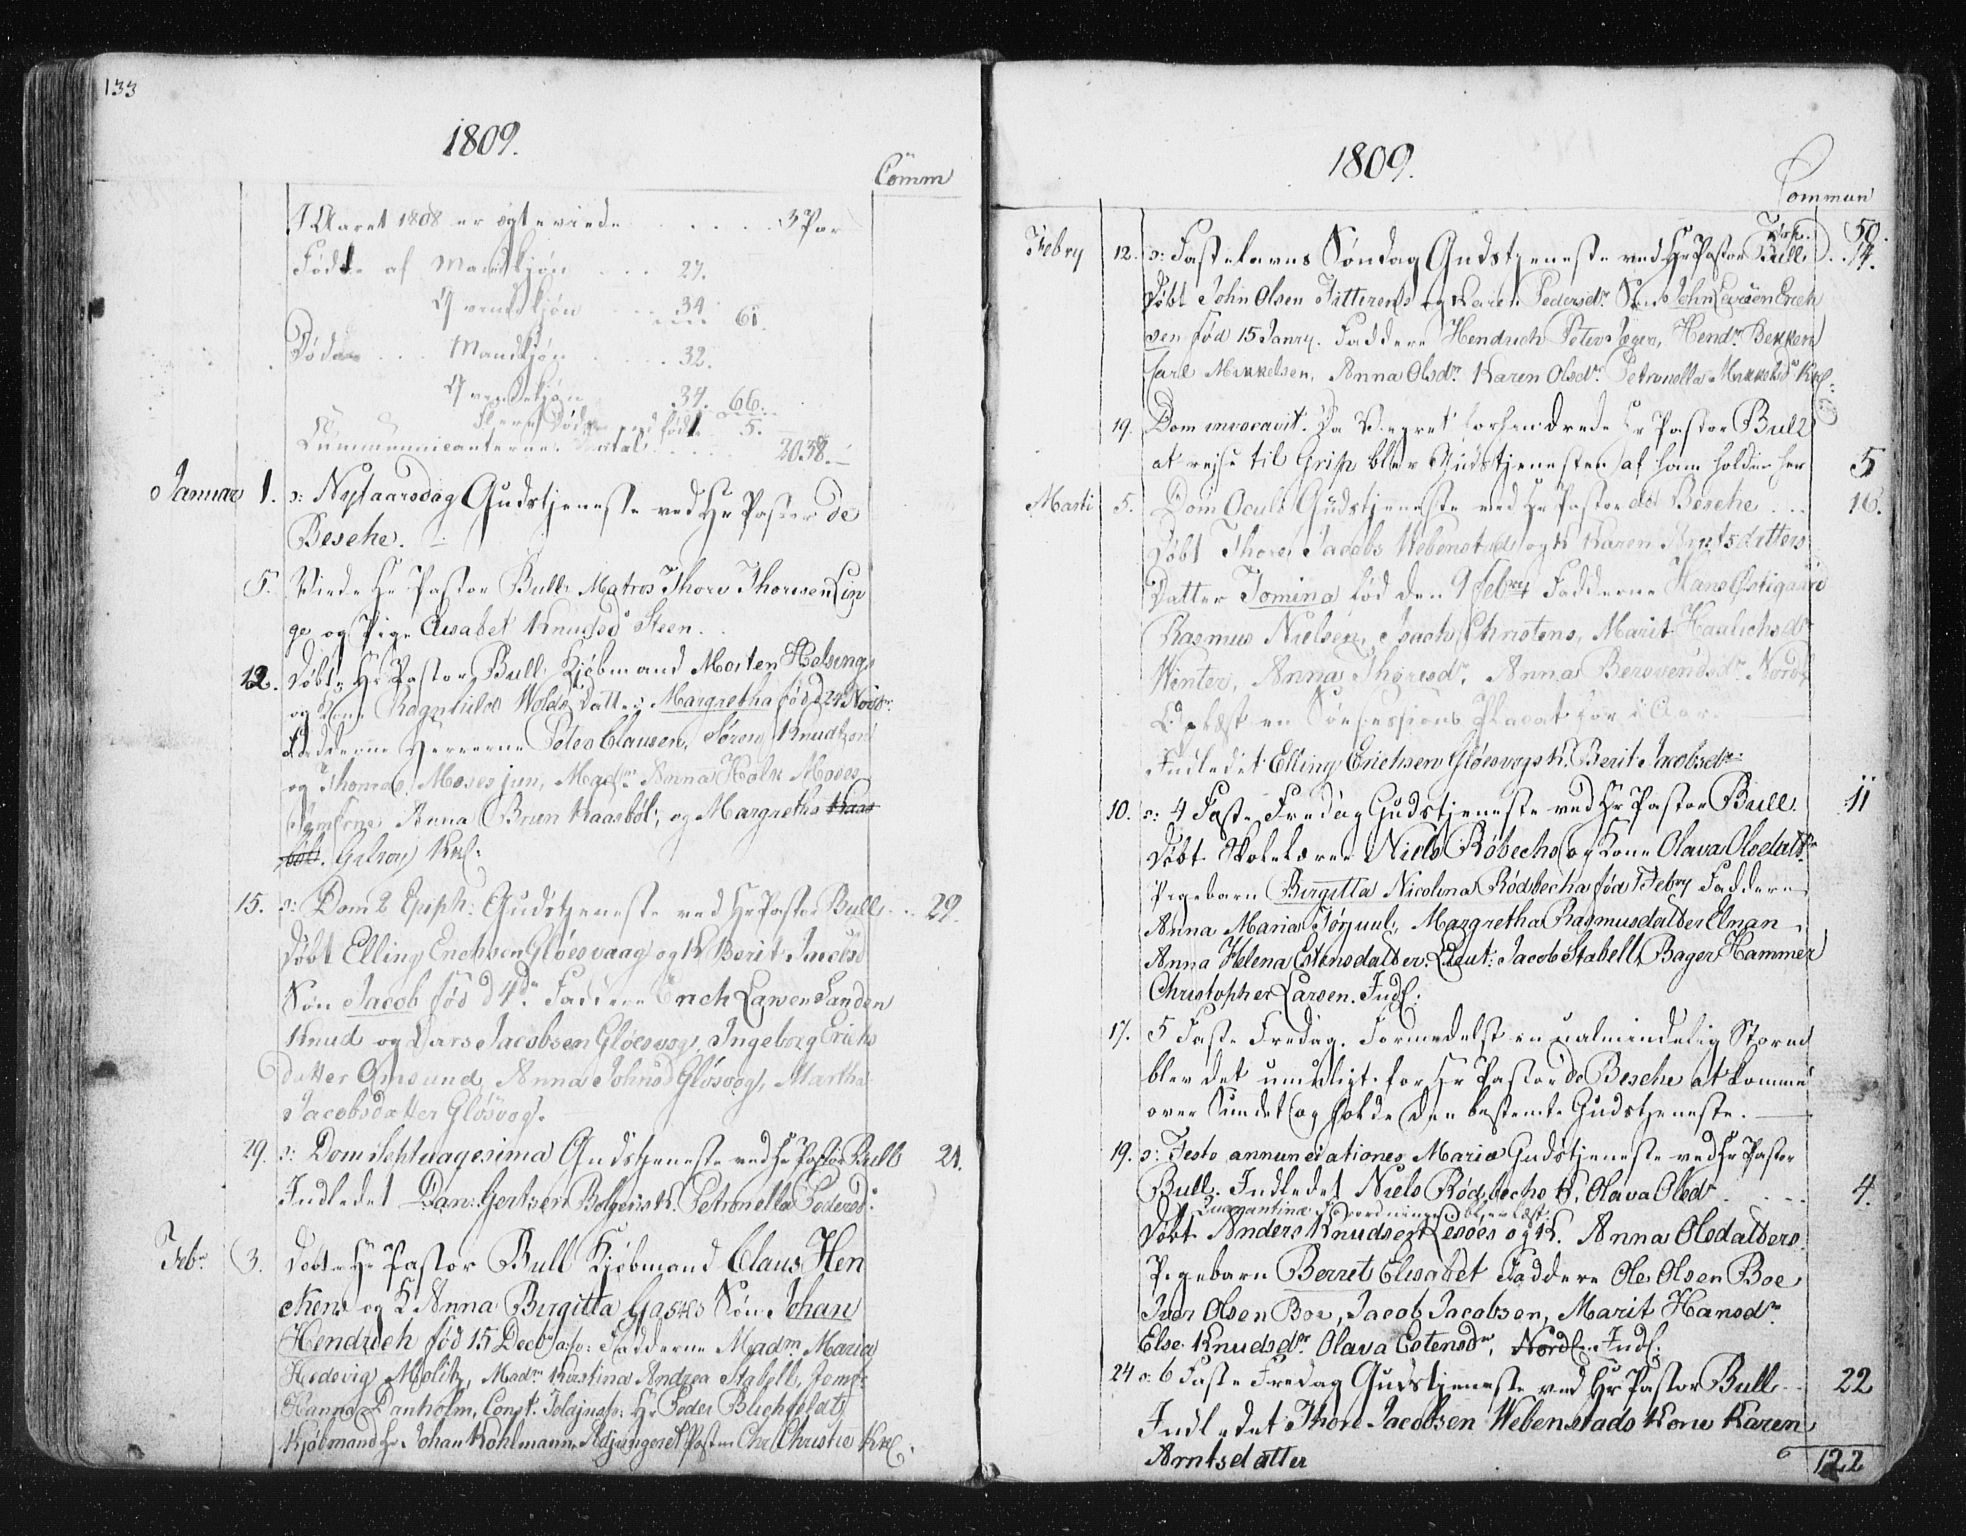 133
1809.
Comm
I Aaret 1808 er ægteviede 3 Par
Fødte af Mandkjøn 27.
Qvindekjøn 34. 61.
Døde Mandkjøn 32.
Qvindekjøn 34. 66.
Flere Døde end fødte 5.
Communicanternes Antal 2038.
Januar 1. s: Nytaarsdag Gudstjeneste ved Hr Pastor de
Besche.
5. Viede Hr Pastor Bull Matros Thore Thoresen Lin
ge og Pige Elisabet Knudsd Steen.
12. Døbte Hr Pastor Bull Kjøbmand Morten Helsings
og Kone Wolds Datter Margretha fød d 24 Novbr.
Fadderne Herrerne Peter Clausen, Søren Knudtzon
og Thomas Moses jun, Madm Anna Holk Moses
Jomfrue Anna Brun Kaasbøl, og Margretha Kaas
bøl. Gelroy Kkl.
15. s: Dom 2 Epiph: Gudstjeneste ved Hr Pastor Bull 29.
Døbt Elling Erichsen Gløesvaag og K Berit Jacobsd
Søn Jacob fød d 4de Faddere Erich Larsen Sanden
Knud og Lars Jacobsen Gløesvog, Ingeborg Erichs
datter Omsund, Anna Johnsd Gløsvog, Martha
Jacobsdatter Gløsvog.
29. s: Dom Septuagesima Gudstjeneste ved Hr Pastor Bull 21.
Indledet Dan: Gertsen Bolgens K. Petronella Pedersd:
Febr 3. Døbte Hr Pastor Bull Kjøbmand Claus Hen
ckens og K Anna Birgitta Søn Johan
Hendrich fød 15 Decbr Fadderne Madm Maria
Hedevig Moltz, Madm Kirstina Andrea Stabell, Jomf:
Hanna Danholm, Const: Hr Peder Blichfeldt
Kjøbmand Hr Johan Kohlmann Adjungeret Pastor Chr: Christie Kkl.
1809.
Commun
50.
Febry 12. s: Fastelavns Søndag Gudstjeneste ved Hr Pastor Bull. 14.
Døbt John Olsen Fitterens og Karen Pedersdr Søn John Erich
sen fød 15 Janry. Faddere Hendrich Hendr Bekken
Carl Mikkelsen, Anna Olsdr Karen Olsdr Petronella Mikkelsdr Kkl.
19. Dom invocavit. Da Veyret forhindrede Hr Pastor Bull
at rejse til Grip blev Gudstjenesten af ham holden her 5
Marti 5. Dom Oculi Gudstjeneste ved Hr Pastor de Besche 16.
Døbt Thore Jacobs Webenstads og K Karen Arntsdatters
Datter Tomina fød den 9 Febry Fadderne Hans Østigaard
Rasmus Nielsen, Christens, Marit
Winter, Anna Anna Nordl
Oplæst en Sessions Placat for i Aar.
Indledet Elling Erichsen Gløesvogs K. Berit Jacobsdr
10. s: 4 Faste Fredag Gudstjeneste ved Hr Pastor Bull. 11
Døbt Skolelærer Niels Røbechs og Kone Olava Olsdatrs
Pigebarn Birgitta Nicolina Rødbecha fød Febry Faddere
Anna Maria Jørjuul, Margretha Rasmusdatter Elnan
Anna Helena Estensdatter. Lieut: Jacob Stabell, Bager Hammer
Christopher Larsen. Indl:
17. 5 Faste Fredag. Formedelst en ualmindelig Storm
blev det umueligt for Hr Pastor de Besche at komme
over Sundet og holde den bestemte Gudstjeneste.
19. s: Festo annunciationes Mariæ Gudstjeneste ved Hr Pastor
Bull. Indledet Niels Rødbechs K. Olava Olsdr 4.
Quarantine Forordningen blev læst.
Døbt Anders Knudsen og K. Anna Olsdatters
Pigebarn Berret Elisabet Faddere Ole Olsen Boe
Iver Olsen Boe, Jacob Jacobsen, Marit Hansdr
Else Knudsdr Olava Estensdr, Nordl. Indl.
24 s: 6 Faste Fredag Gudstjeneste ved Hr Pastor Bull 22
Indledet Thore Jacobsen Webenstads Kone Karen
Arntsdatter 122